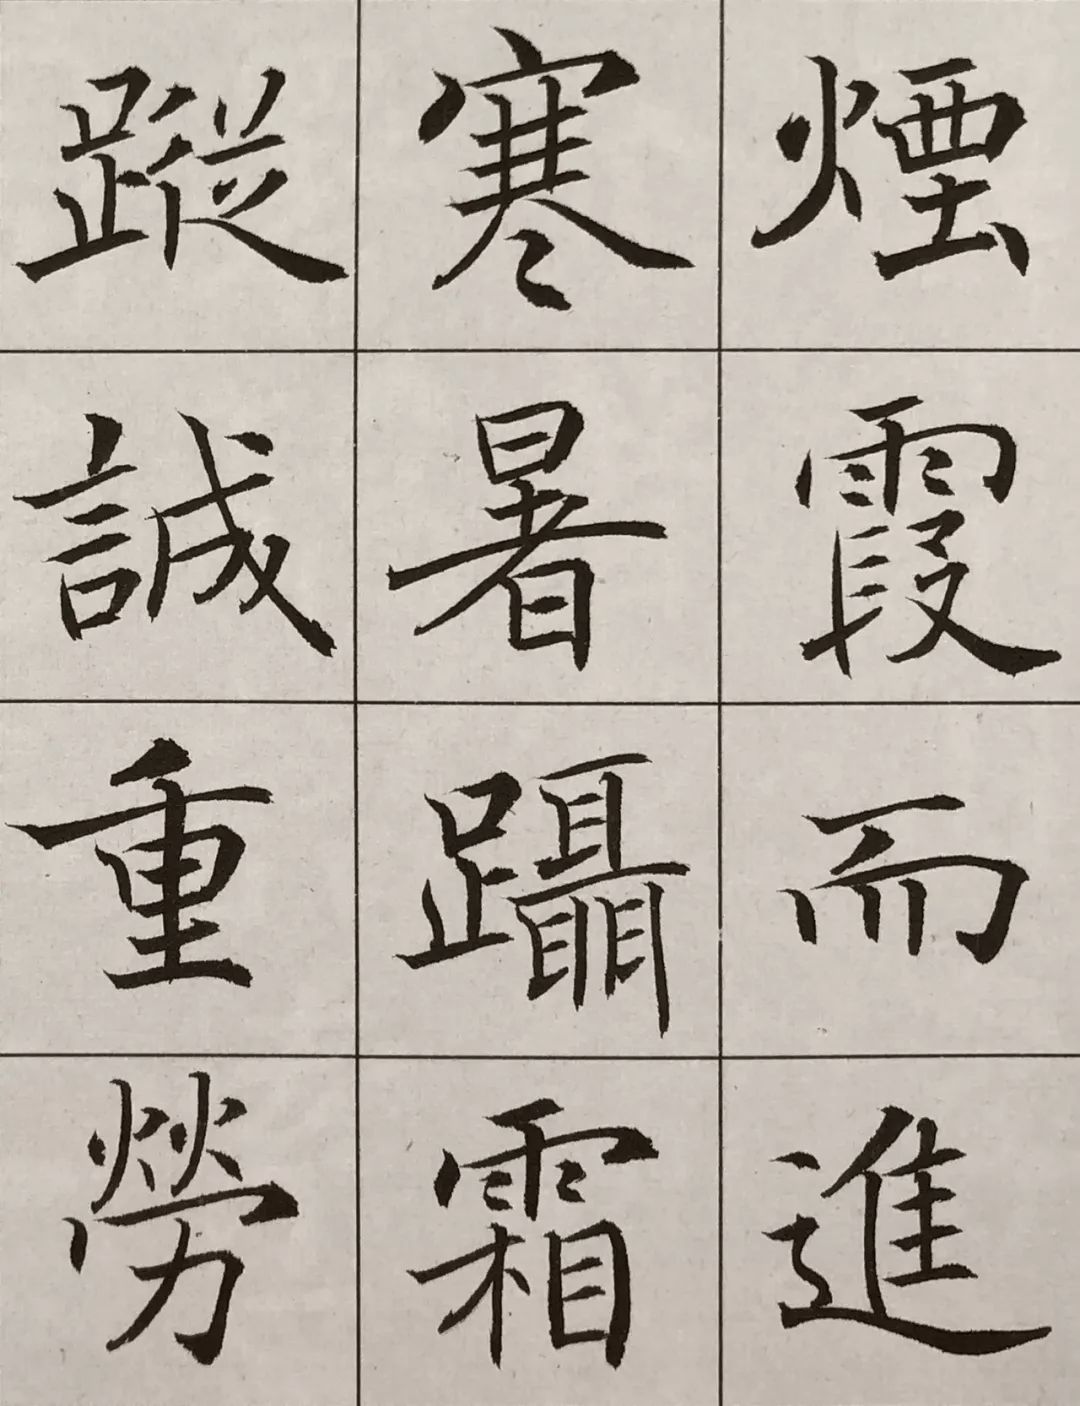 煙霞而進
寒暑躡霜
蹤誠重勞